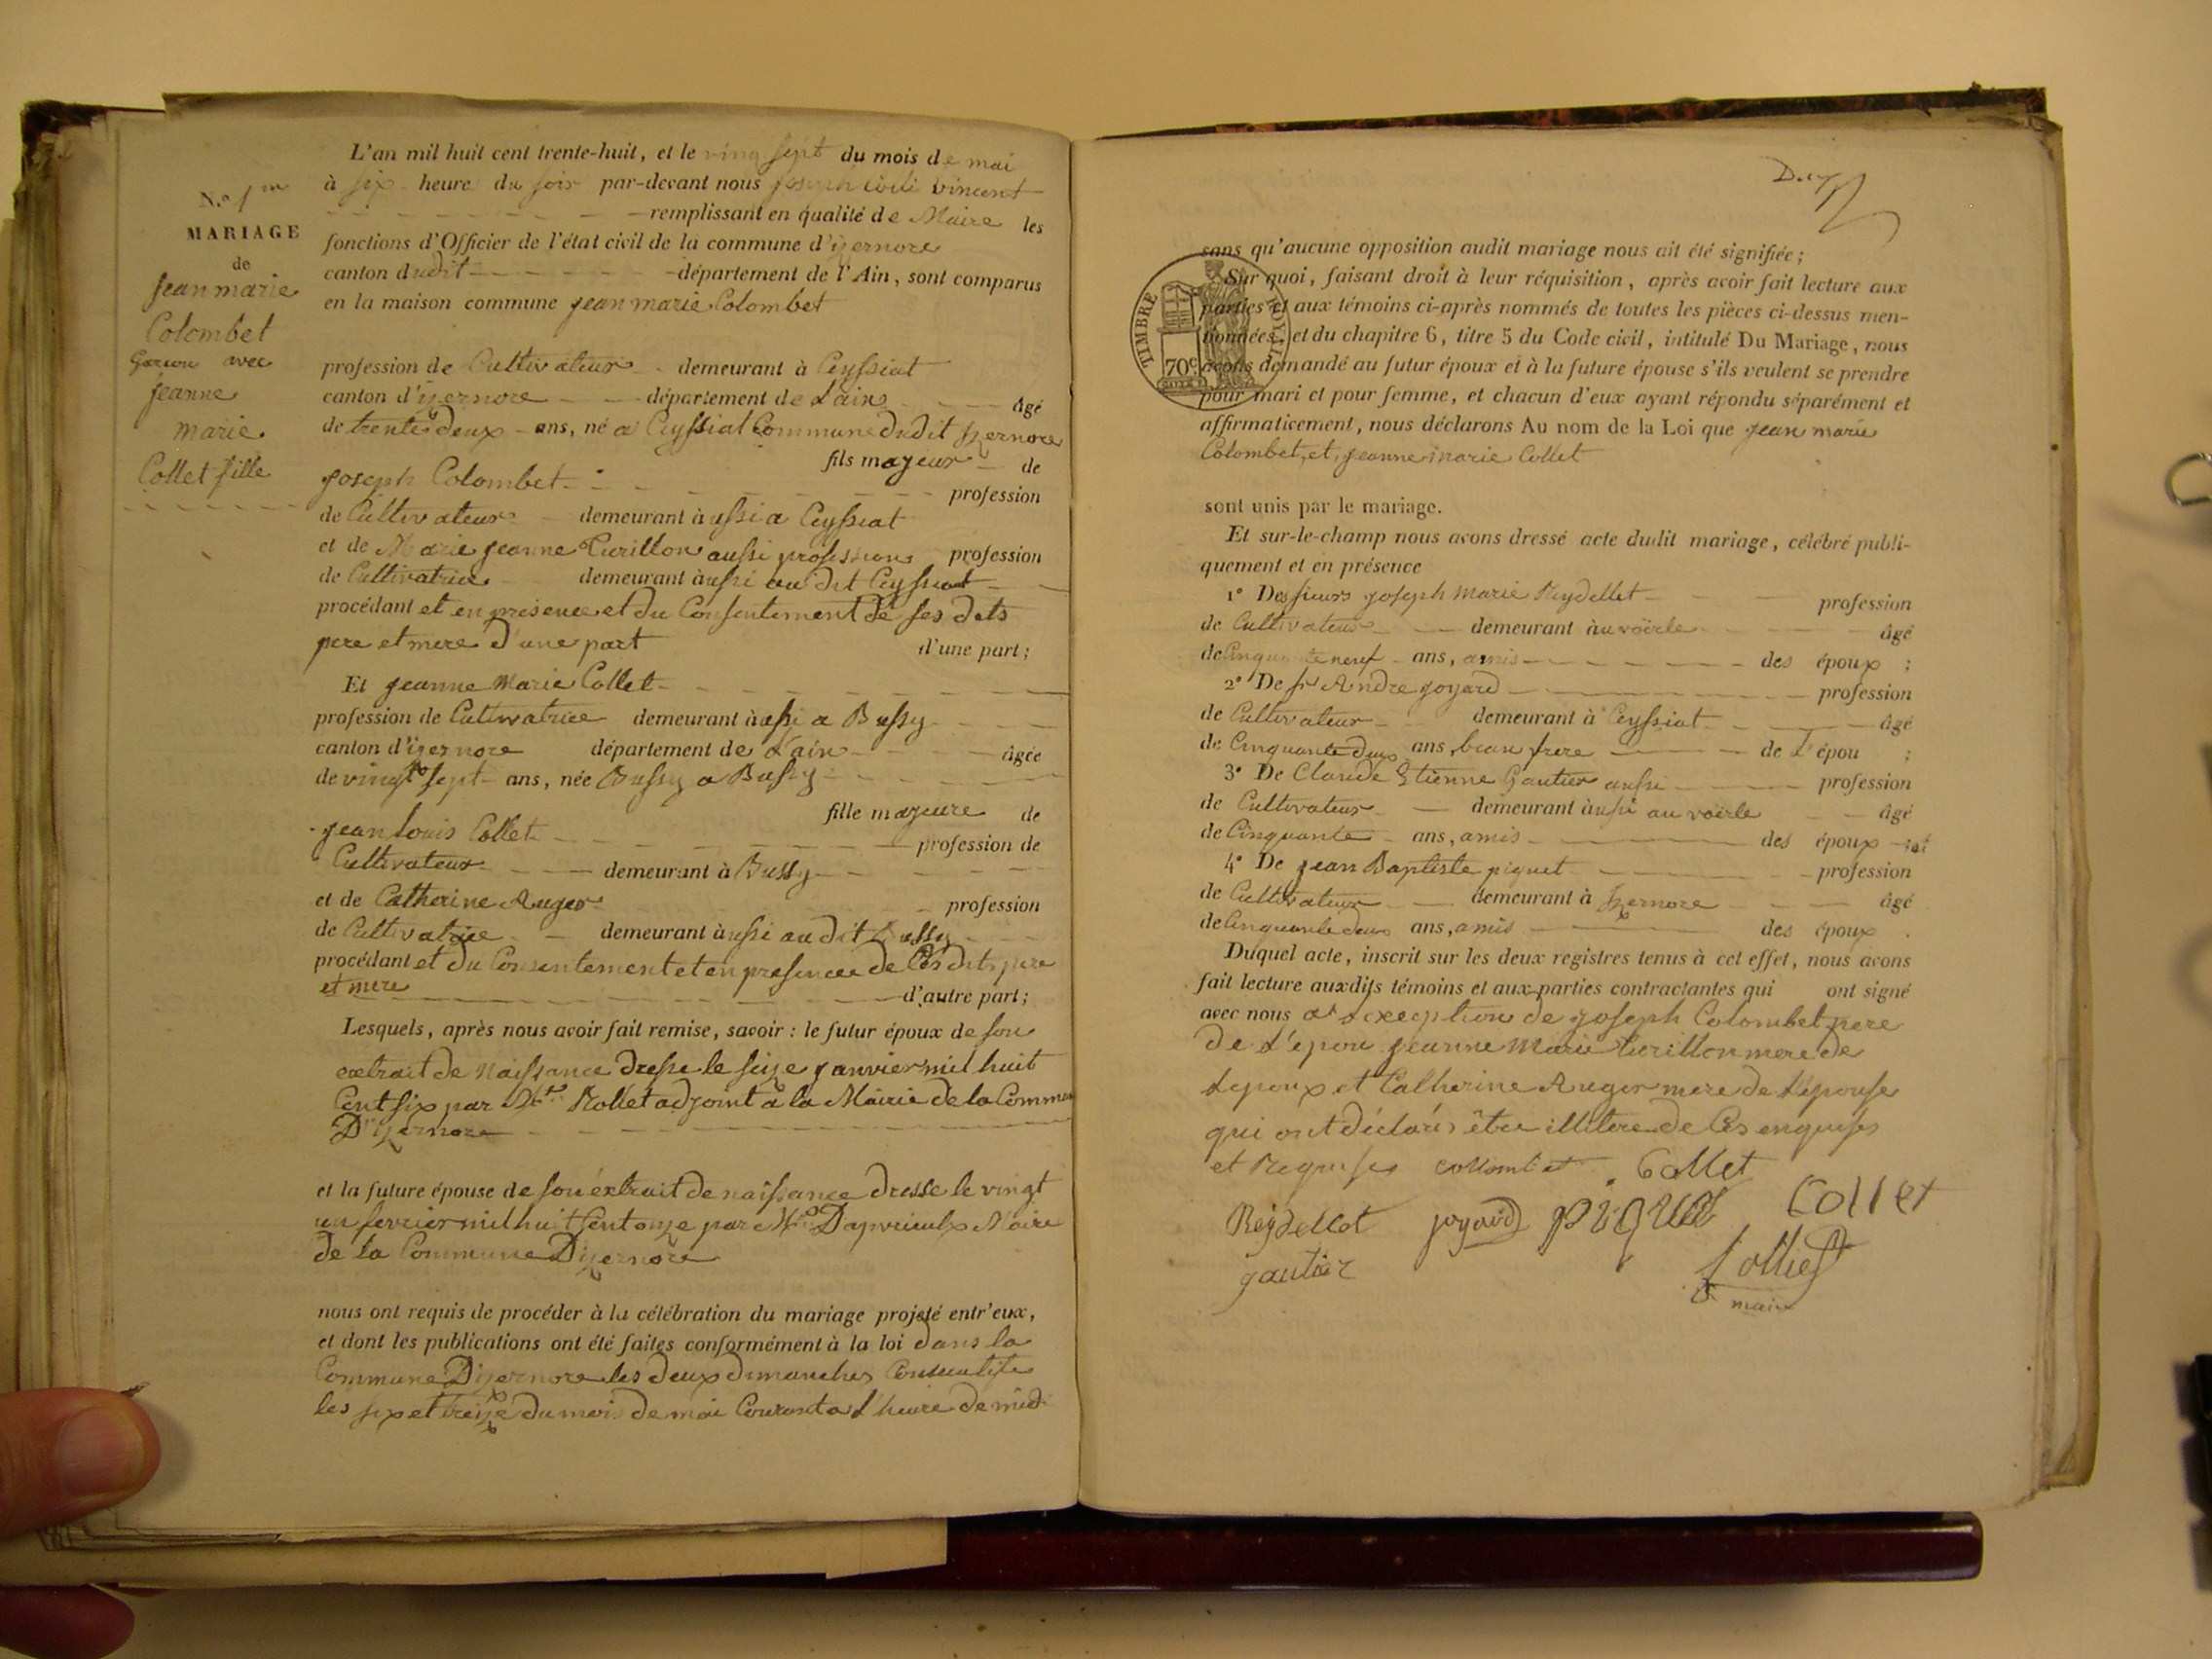 N.º 1er
MARIAGE
de
Jean marie
Colombet
Garcon avec
jeanne
marie
Collet fille
L'an mil huit cent trente-huit, et le vingt sept du mois de mai
à six heure du soir par-devant nous joseph vincent
remplissant en qualité de Maire les
fonctions d'Officier de l'état civil de la commune d'izernore
canton dudit département de l'Ain, sont comparus
en la maison commune jean marie Colombet
profession de Cultivateur demeurant à Ceyssiat
canton d'izernore département de L'ain âgé
de trente deux ans, né a Ceyssiat Commune dudit Izernore
fils majeur de
joseph Colombet profession
de Cultivateur demeurant àussi a Ceyssiat
et de Marie jeanne Turillon aussi profession profession
de Cultivatrice demeurant àussi au dit Ceyssiat
procédant et en présence et du Consentement de ses dits
pere et mere d'une part d'une part;
Et jeanne Marie Collet
profession de Cultivatrice demeurant àussi a Bussy
canton d'izernore département de L'ain âgée
de vingt sept ans, née Bussy a Bussy
fille majeure de
jean louis Collet profession de
Cultivateur demeurant à Bussy
et de Catherine Auger profession
de Cultivatrice demeurant àussi au dit Bussy
procédant et du Consentement et en presence de Ces dits pere
et mere d'autre part;
Lesquels, après nous avoir fait remise, savoir: le futur époux de son
extrait de Naissance dresse le seize janvier mil huit
Cent six par Mr Rollet adjoint a la Mairie de la Commu
D'izernore
et la future épouse de son éxtrait de naissance dresse le vingt
un fevrier mil huit Cent onze par Mr Maire
de la Commune Dizernore
nous ont requis de procéder à la célébration du mariage projeté entr'eux,
et dont les publications ont été faites conformément à la loi dans la
Commune Dizernore les deux dimanches
les six et treize du mois de mai Courant a L'heure de midi
sans qu'aucune opposition audit mariage nous ait été signifiée;
TIMBRE ROYAL
70c
Sur quoi, faisant droit à leur réquisition, après avoir fait lecture aux
parties et aux témoins ci-après nommés de toutes les pièces ci-dessus men-
tionnées, et du chapitre 6, titre 5 du Code civil, intitulé Du Mariage, nous
avons demandé au futur époux et à la future épouse s'ils veulent se prendre
pour mari et pour femme, et chacun d'eux ayant répondu séparément et
affirmativement, nous déclarons Au nom de la Loi que jean marie
Colombet, et, jeanne marie Collet
sont unis par le mariage.
Et sur-le-champ nous avons dressé acte dudit mariage, célébré publi-
quement et en présence
1º Des sieurs joseph Marie Reydellet profession
de Cultivateur demeurant àu voërle âgé
de Cinquante neuf ans, amis des époux ;
2º De sr Andre joyard profession
de Cultivateur demeurant à Ceyssiat âgé
de Cinquante deux ans, beau frere de L'épou ;
3º De Claude Etienne Gautier aussi profession
de Cultivateur demeurant àussi au voërle âgé
de Cinquante ans, amis des époux
4º De jean Baptiste piquet profession
de Cultivateur demeurant à Izernore âgé
de Cinquante deux ans, amis des époux .
Duquel acte, inscrit sur les deux registres tenus à cet effet, nous avons
fait lecture auxdits témoins et aux parties contractantes qui ont signé
avec nous a L'exception de joseph Colombet pere
de L'épou jeanne Marie turillon mere de
Lepoux et Catherine Auger mere de Lépouse
qui ont déclarés être illitere de Ces enquises
et Requises collombet Collet
Reydellet joyard piquet Collet
gautier
maire